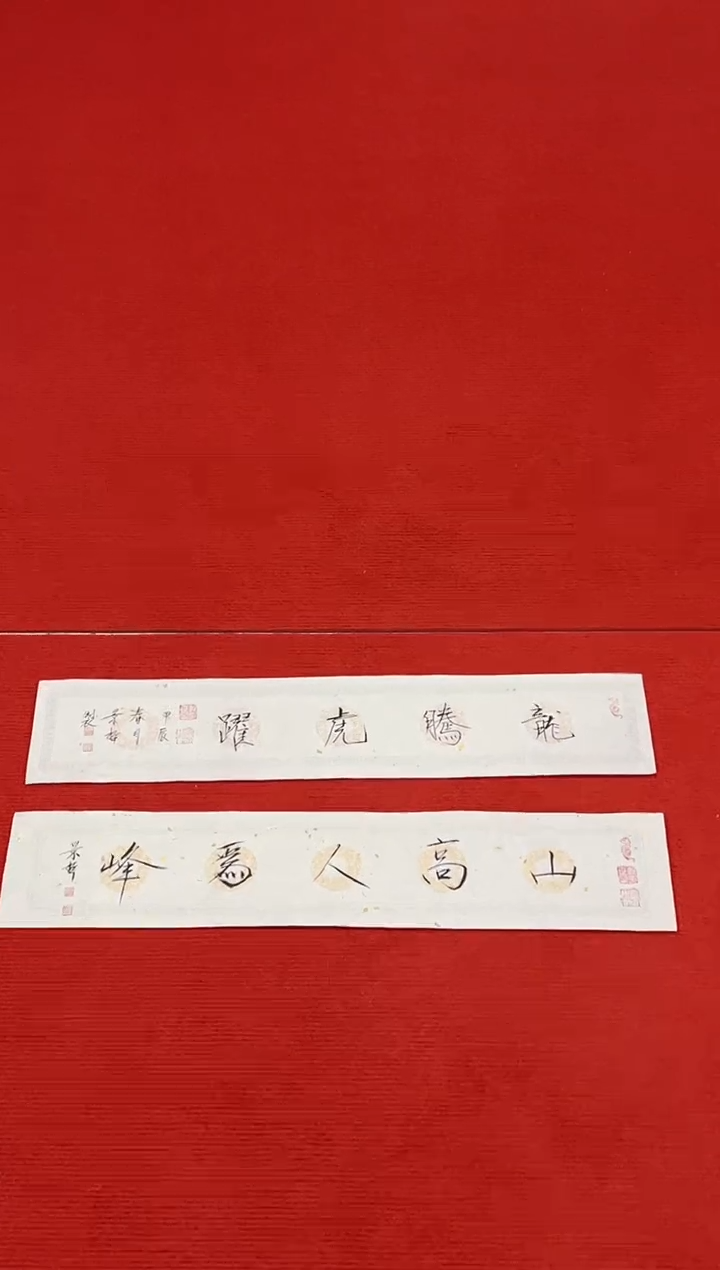 龍騰虎躍
甲辰
春月
景哲
製
山高人爲峰
景哲